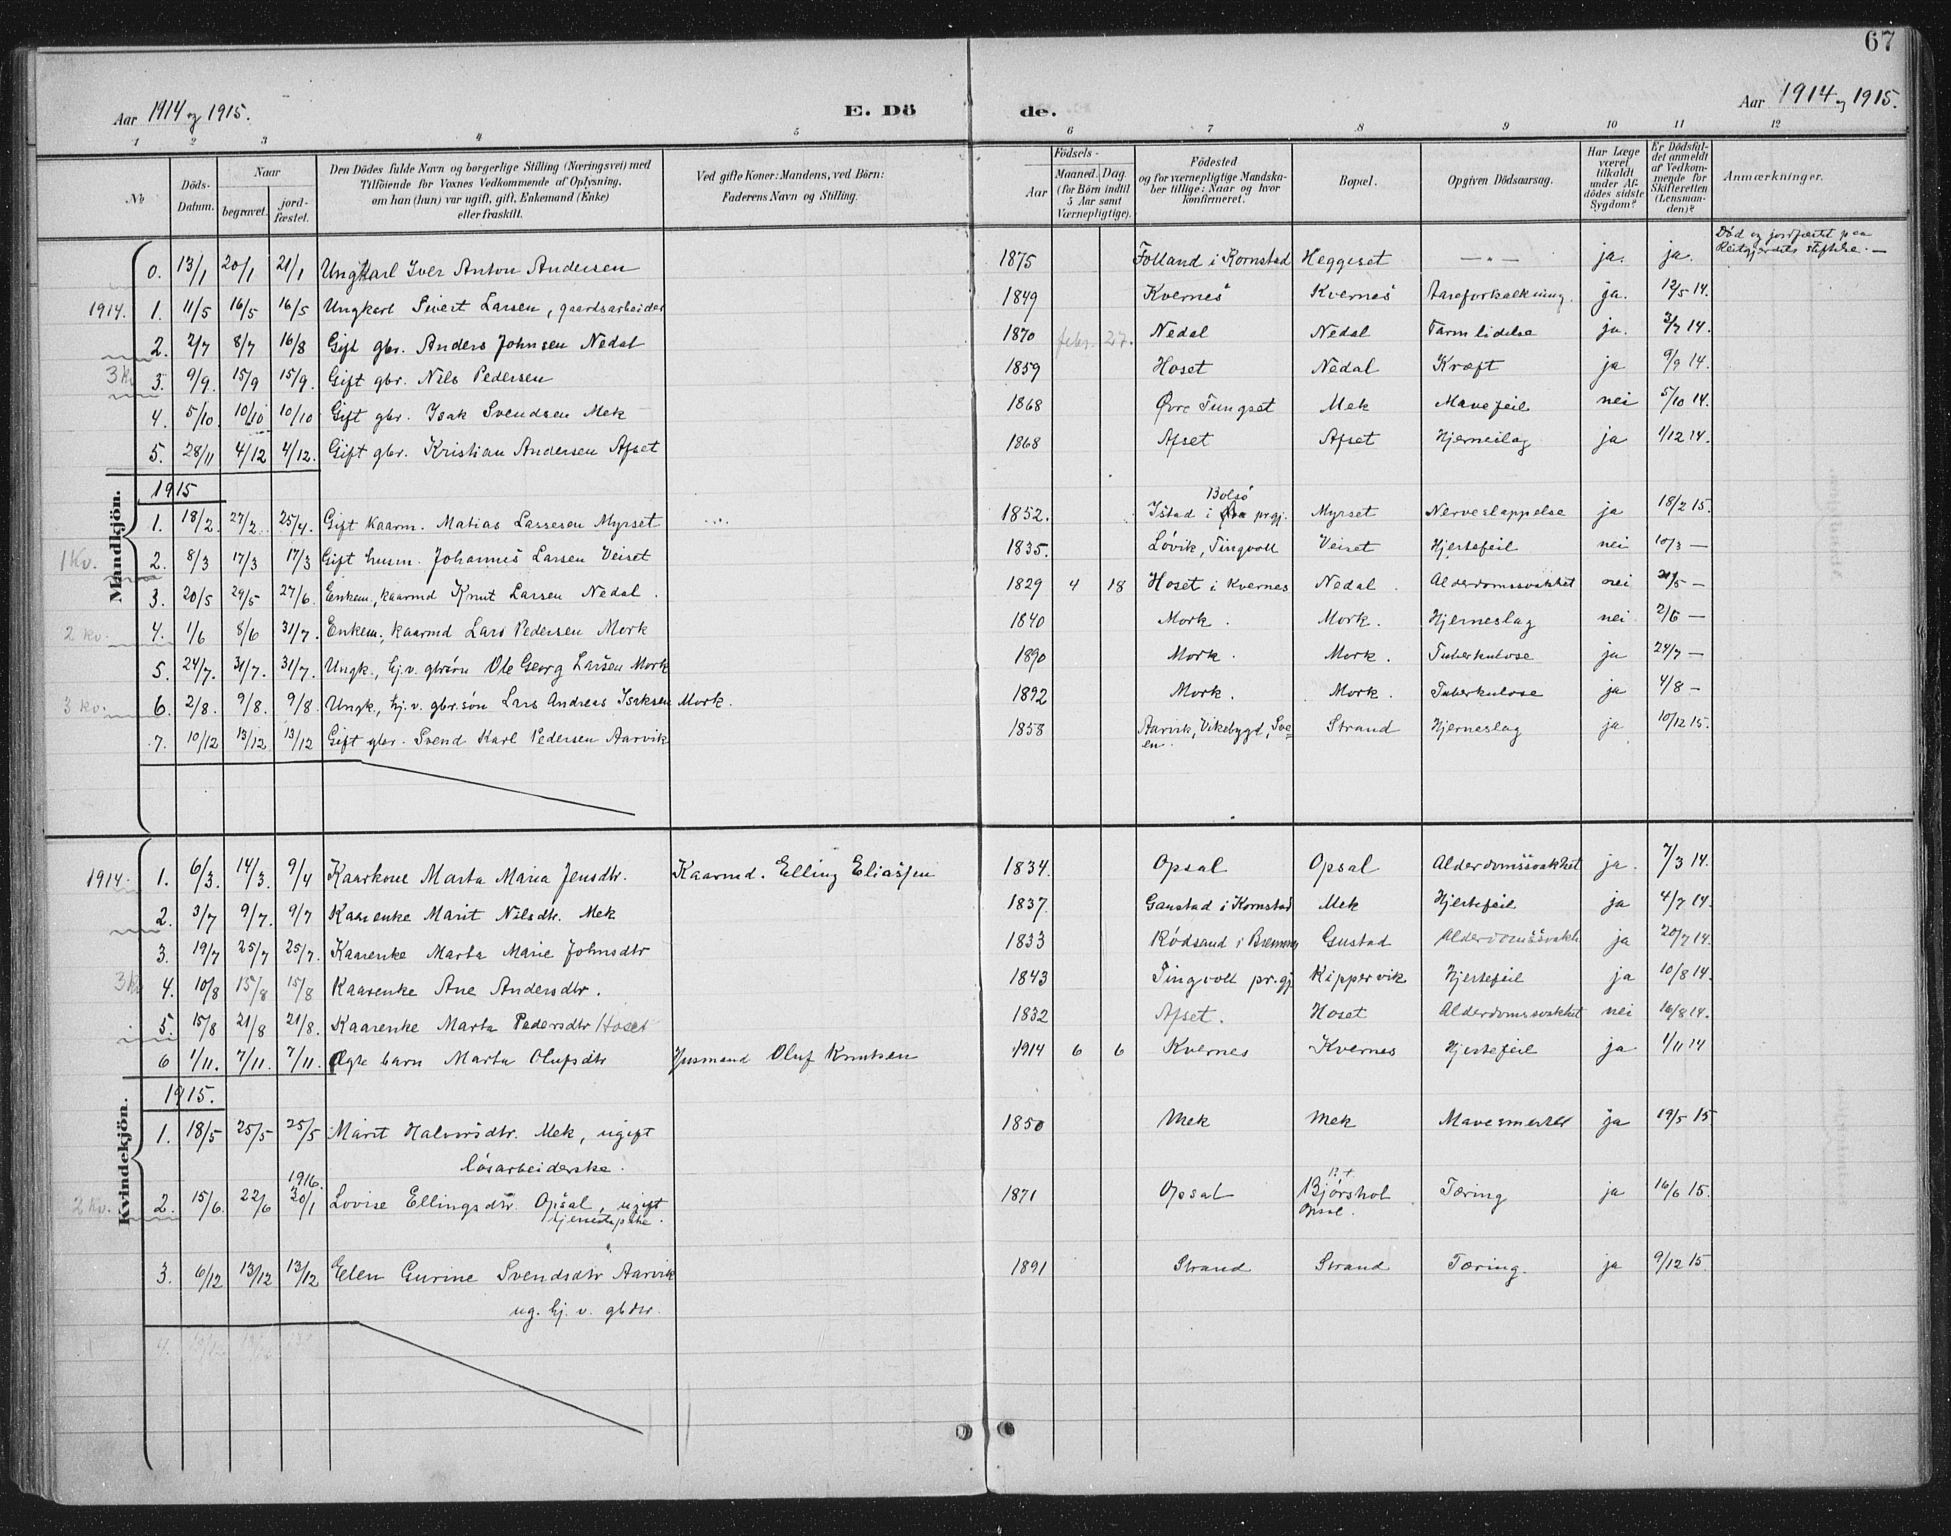 67
Aar 1914 og 1915.
E. Dö
de.
Aar 1914 og 1915.
1 2 3 4 5 6 7 8 9 10 11 12
No
Döds-Datum.
Naar
begravet.
jord-fæstet.
Den Dödes fulde Navn og borgerlige Stilling (Næringsvei) med
Tilföiende for Voxnes Vedkommende af Oplysning,
om han (hun) var ugift, gift, Enkemand (Enke)
eller fraskilt.
Ved gifte Koner: Mandens, ved Börn:
Faderens Navn og Stilling.
Födsels-
Aar
Maaned. Dag
(for Börn indtil
5 Aar samt
Værnepligtige).
Födested
og for værnepligtige Mandska-
ber tillige: Naar og hvor
konfirmeret.
Bopæl.
Opgiven Dödsaarsag.
Har Læge
været
tilkaldt
under Af-
dödes sidste
Sygdom?
Er Dödsfal-
det anmeldt
af Vedkom-
mende for
Skifteretten
(Lensman-
den)?
Anmærkninger.
Mandkjön.
0. 13/1 20/1 21/1 Ungkarl Iver Anton Andersen 1875 Folland i Kornstad Heggeset — " — ja. ja. Død og jordfæstet paa
Reitgjerdets stiftelse. —
1914. 1. 11/5 16/5 16/5 Ungkarl Sivert Larsen, gaardsarbeider 1849 Kvernes Kvernes Aareforkalkning. ja. 12/5 14.
2. 2/7 8/7 16/8 Gift gbr. Anders Johnsen Nedal 1870 febr. 27. Nedal Nedal Tarmlidelse ja. 3/7 14.
3 Kv 3. 9/9. 15/9 15/9. Gift gbr. Nils Pedersen 1859 Hoset Nedal Kræft ja 9/9 14.
4. 5/10. 10/10 10/10 Gift gbr. Isak Svendsen Mek 1868 Øvre Tungset Mek Mavefeil nei 5/10 14.
5. 28/11 4/12 4/12. Gift gbr. Kristian Andersen Afset 1868 Afset Afset Hjerneslag ja 1/12 14.
1915
1. 18/2. 27/2. 25/4. Gift kaarm. Matias Lassesen Myrset 1852. Istad i Bolsø prgj. Myrset Nerveslappelse ja 18/2 15.
1 Kv. 2. 8/3 17/3 17/3 Gift husm. Johannes Larsen Veiset 1835. Løvik, Tingvoll Veiset Hjertefeil nei 10/3 —
3. 20/5 29/5 27/6. Enkem., kaarmd Knut Larsen Nedal. 1829 4 18 Hoset i Kvernes Nedal. Alderdomssvakhet nei 21/5 —
2 kv. 4. 1/6 8/6 31/7. Enkem., kaarmd Lars Pedersen Mork 1840 Mork. Mork. Hjerneslag nei 2/6 —
5. 24/7. 31/7. 31/7. Ungk., hj. v. gbrsøn Ole Georg Larsen Mork 1890 Mork. Mork. Tuberkulose ja 24/7 —
3 kv. 6. 2/8. 9/8. 9/8. Ungk., hj. v. gbr.søn Lars Andreas Isaksen Mork. 1892 Mork. Mork. Tuberkulose ja 4/8 —
7. 10/12 13/12 13/12 Gift gbr. Svend Karl Pedersen Aarvik 1858 Aarvik, Vikebygd, Sve-
en. Strand Hjerneslag ja 10/12 15.
Kvindekjön.
1914. 1. 6/3. 14/3. 9/4 Kaarkone Marta Maria Jensdtr. Kaarmd. Elling Eliassen 1834. Opsal Opsal Alderdomssvakhet ja. 7/3 14.
2. 3/7 9/7. 9/7 Kaarenke Marit Nilsdtr. Mek 1837. Gaustad i Kornstad Mek Hjertefeil ja 4/7 14.
3. 19/7 25/7 25/7. Kaarenke Marta Marie Johnsdtr 1833 Rødsand i Bremsnes Gustad Alderdomssvakh. ja 20/7 14.
3 Kv 4. 10/8 15/8 15/8 Kaarenke Ane Andersdtr. 1843 Tingvoll pr.gj. Kippervik Hjertefeil ja 10/8 14.
5. 15/8 21/8 21/8. Kaarenke Marta Pedersdtr Hoset 1832 Afset. Hoset Alderdomssvakhet nei 16/8 14.
6 1/11. 7/11. 7/11. Ægte barn Marta Olufsdtr Husmand Oluf Knutsen 1914 6 6 Kvernes Kvernes Hjertefeil ja. 1/11 14
1915.
1. 18/5 25/5 25/5 Marit Halvorsdtr. Mek, ugift
løsarbeiderske. 1850 Mek Mek Mavesmerter ja 19/5 15.
2 Kv. 2. 15/6. 22/6 1916. 30/1 Lovise Ellingsdtr. Opsal, ugift
tjenestepike. 1871 Opsal Bjørshol
Opsal. Tæring ja 16/6 15.
3. 6/12 13/12 13/12 Elen Gurine Svendsdtr Aarvik
ug. hj. v. gbdtr. 1891 Strand Strand Tæring. ja 9/12 15.
4.